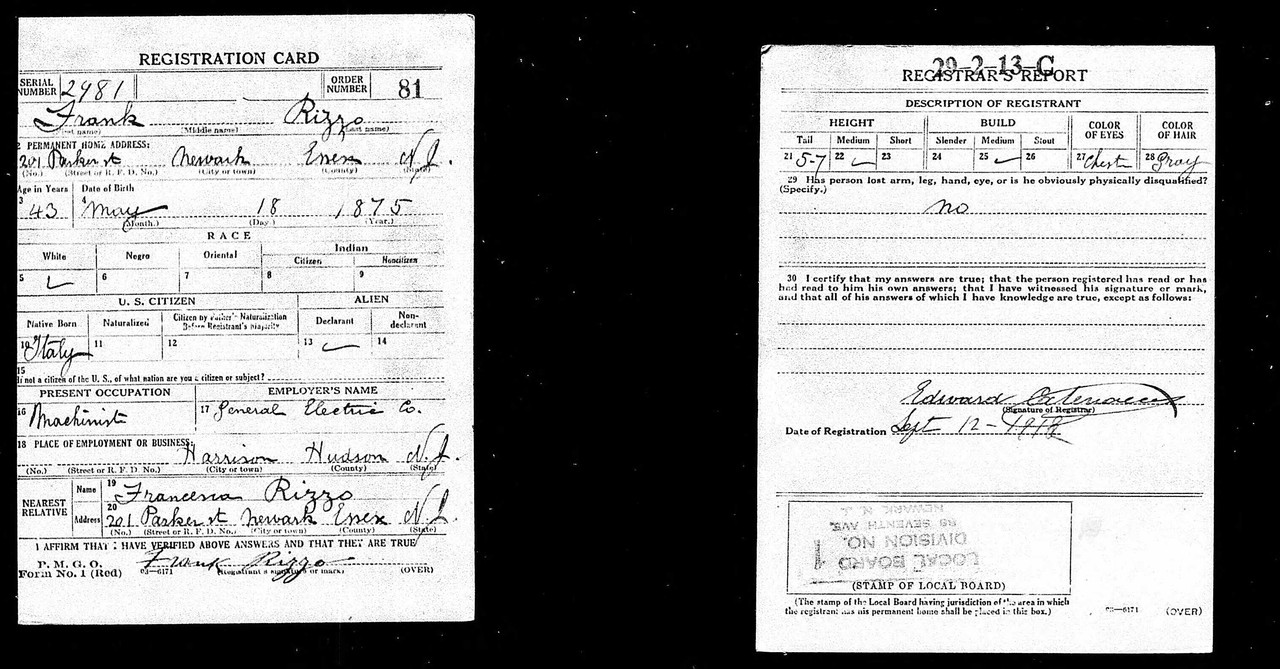 REGISTRATION CARD
SERIAL NUMBER 2981 ORDER NUMBER 81
Frank Rizzo
(First name) (Middle name) (Last name)
2 PERMANENT HOME ADDRESS:
201 Parker st Newark Essex N.J.
(No.) (Street or R. F. D. No.) (City or town) (County) (State)
Age in Years Date of Birth
3 43 4 May 18 1875
(Month.) (Day.) (Year.)
RACE
White Negro Oriental Indian
Citizen Noncitizen
5 6 7 8 9
U. S. CITIZEN ALIEN
Native Born Naturalized Citizen by Father's Naturalization Before Registrant's Majority Declarant Non-declarant
10 Italy 11 12 13 14
15
If not a citizen of the U. S., of what nation are you a citizen or subject?
PRESENT OCCUPATION EMPLOYER'S NAME
16 Machinist 17 General Electric Co.
18 PLACE OF EMPLOYMENT OR BUSINESS:
Harrison Hudson N.J.
(No.) (Street or R. F. D. No.) (City or town) (County) (State)
NEAREST RELATIVE Name 19 Rizzo
Address 20 201 Parker st Newark Essex N.J.
(No.) (Street or R. F. D. No.) (City or town) (County) (State)
I AFFIRM THAT I HAVE VERIFIED ABOVE ANSWERS AND THAT THEY ARE TRUE
P. M. G. O.
Form No. 1 (Red) 03—6171 Frank Rizzo
(Registrant's signature or mark) (OVER)
29-2-13-C
REGISTRAR'S REPORT
DESCRIPTION OF REGISTRANT
HEIGHT BUILD COLOR OF EYES COLOR OF HAIR
Tall Medium Short Slender Medium Stout
21 5-7 22 23 24 25 26 27 Chest 28 Gray
29 Has person lost arm, leg, hand, eye, or is he obviously physically disqualified?
(Specify.)
no
30 I certify that my answers are true; that the person registered has read or has
had read to him his own answers; that I have witnessed his signature or mark,
and that all of his answers of which I have knowledge are true, except as follows:
Edward
(Signature of Registrar)
Date of Registration Sept 12-1918
LOCAL BOARD
DIVISION NO. 1
SEVENTH AVE.
NEWARK, N. J.
(STAMP OF LOCAL BOARD)
(The stamp of the Local Board having jurisdiction of the area in which
the registrant has his permanent home shall be placed in this box.)
03—6171 (OVER)